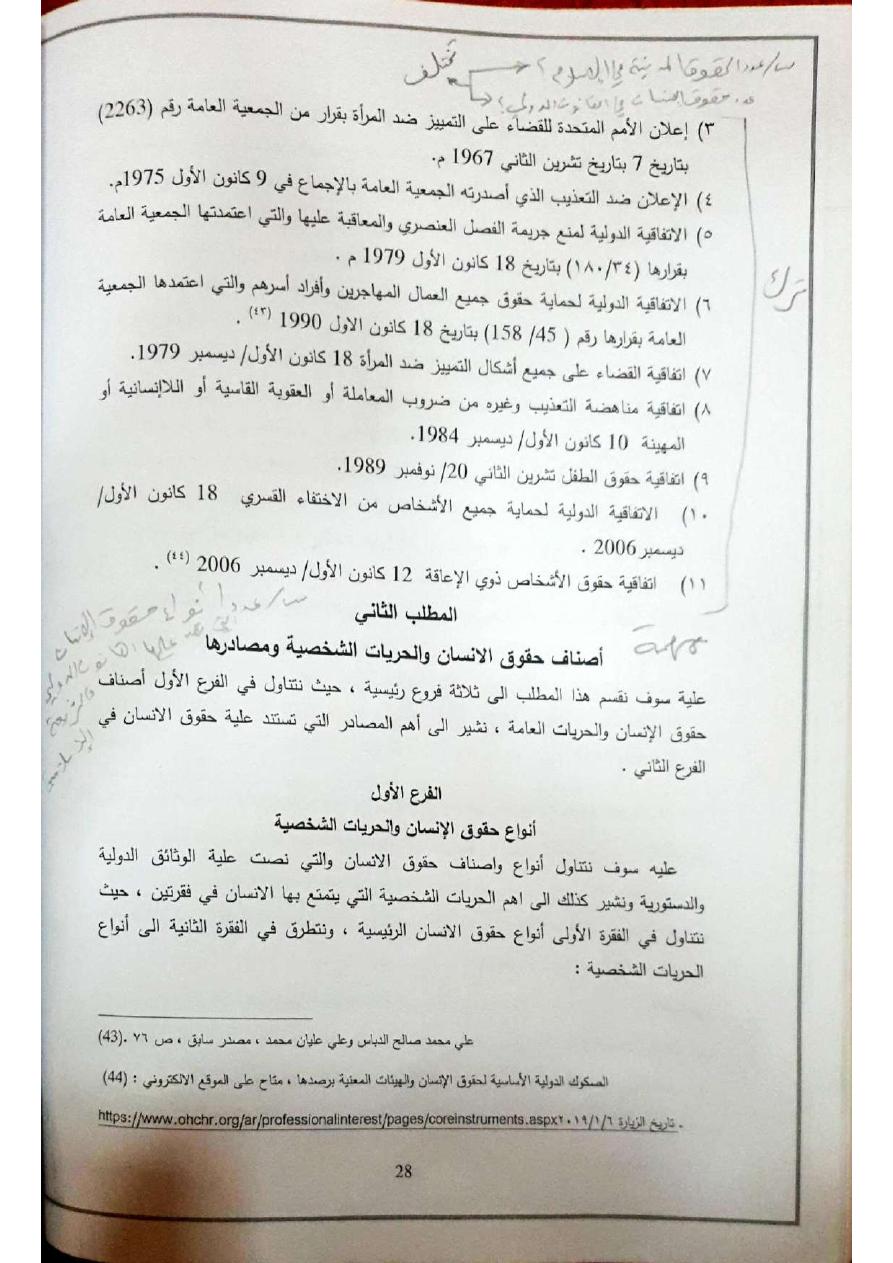 س/ عدد الحقوق المدنية في الإسلام ؟
تختلف
عدد حقوق الإنسان في القانون الدولي ؟
٣) إعلان الأمم المتحدة للقضاء على التمييز ضد المرأة بقرار من الجمعية العامة رقم (2263)
بتاريخ 7 بتاريخ تشرين الثاني 1967 م.
٤) الإعلان ضد التعذيب الذي أصدرته الجمعية العامة بالإجماع في 9 كانون الأول 1975م.
٥) الاتفاقية الدولية لمنع جريمة الفصل العنصري والمعاقبة عليها والتي اعتمدتها الجمعية العامة
بقرارها (١٨٠/٣٤) بتاريخ 18 كانون الأول 1979 م .
ترك
٦) الاتفاقية الدولية لحماية حقوق جميع العمال المهاجرين وأفراد أسرهم والتي اعتمدها الجمعية
العامة بقرارها رقم ( 45/ 158) بتاريخ 18 كانون الاول 1990 (٤٣) .
٧) اتفاقية القضاء على جميع أشكال التمييز ضد المرأة 18 كانون الأول/ ديسمبر 1979.
٨) اتفاقية مناهضة التعذيب وغيره من ضروب المعاملة أو العقوبة القاسية أو اللاإنسانية أو
المهينة 10 كانون الأول/ ديسمبر 1984.
٩) اتفاقية حقوق الطفل تشرين الثاني 20/ نوفمبر 1989.
١٠) الاتفاقية الدولية لحماية جميع الأشخاص من الاختفاء القسري 18 كانون الأول/
ديسمبر 2006 .
١١) اتفاقية حقوق الأشخاص ذوي الإعاقة 12 كانون الأول/ ديسمبر 2006 (٤٤) .
س/ عدد أنواع حقوق الإنسان
التي نص عليها القانون الدولي
والشريعة
الإسلامية
المطلب الثاني
مهمة
أصناف حقوق الانسان والحريات الشخصية ومصادرها
علية سوف نقسم هذا المطلب الى ثلاثة فروع رئيسية ، حيث نتناول في الفرع الأول أصناف
حقوق الإنسان والحريات العامة ، نشير الى أهم المصادر التي تستند علية حقوق الانسان في
الفرع الثاني .
الفرع الأول
أنواع حقوق الإنسان والحريات الشخصية
عليه سوف نتناول أنواع واصناف حقوق الانسان والتي نصت علية الوثائق الدولية
والدستورية ونشير كذلك الى اهم الحريات الشخصية التي يتمتع بها الانسان في فقرتين ، حيث
نتناول في الفقرة الأولى أنواع حقوق الانسان الرئيسية ، ونتطرق في الفقرة الثانية الى أنواع
الحريات الشخصية :
علي محمد صالح الدباس وعلي عليان محمد ، مصدر سابق ، ص ٧٦ .(43)
الصكوك الدولية الأساسية لحقوق الإنسان والهيئات المعنية برصدها ، متاح على الموقع الالكتروني : (44)
https://www.ohchr.org/ar/professionalinterest/pages/coreinstruments.aspx تاريخ الزيارة ٢٠١٩/١/٦ .
28